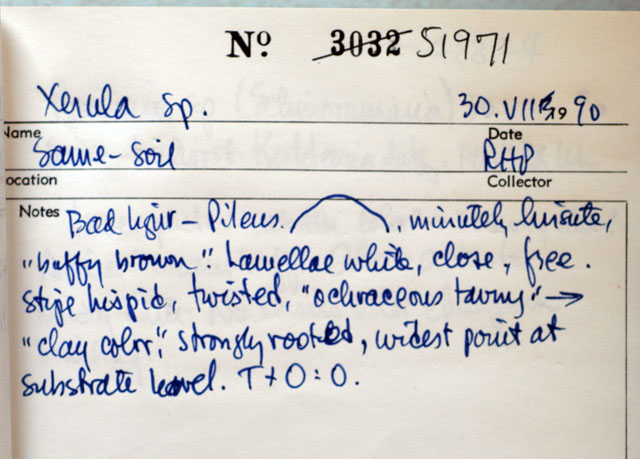 Nº 3032 51971
Xerula sp. 30.VII.1990
Name Date
Same - Soil RHP
Location Collector
Notes Bad hair - Pileus. , minutely hirsute,
"buffy brown". Lamellae white, close, free.
Stipe hispid, twisted, "ochraceous tawny" →
"clay color", strongly rooted, widest point at
substrate level. T + O : O.